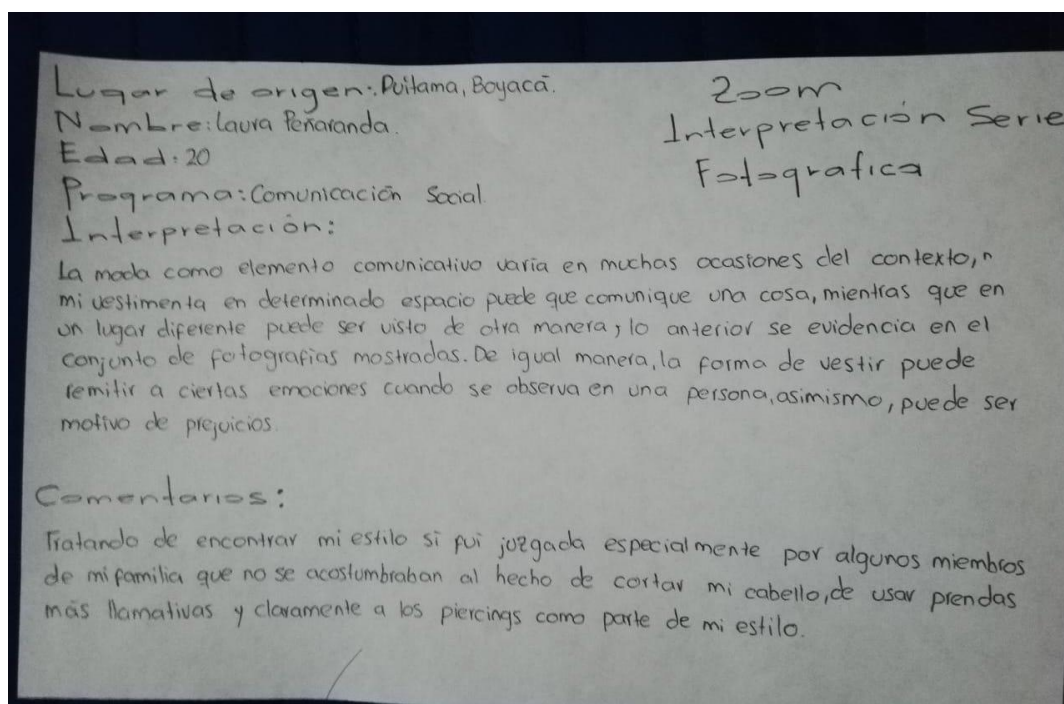 Lugar de origen: Duitama, Boyacá.
Nombre: Laura Peñaranda.
Edad: 20
Programa: Comunicación Social.
Interpretación:
Zoom
Interpretación Serie
Fotografica
La moda como elemento comunicativo varía en muchas ocasiones del contexto, n
mi vestimenta en determinado espacio puede que comunique una cosa, mientras que en
un lugar diferente puede ser visto de otra manera; lo anterior se evidencia en el
conjunto de fotografías mostradas. De igual manera, la forma de vestir puede
remitir a ciertas emociones cuando se observa en una persona, asimismo, puede ser
motivo de prejuicios.
Comentarios:
Tratando de encontrar mi estilo si fui juzgada especialmente por algunos miembros
de mi familia que no se acostumbraban al hecho de cortar mi cabello, de usar prendas
más llamativas y claramente a los piercings como parte de mi estilo.